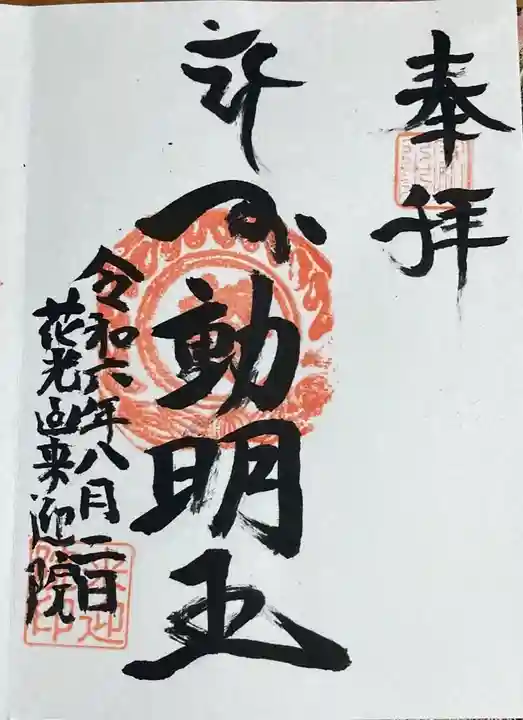 奉拝
不動明王
令和六年八月二日
花光山来迎院
来迎
院印